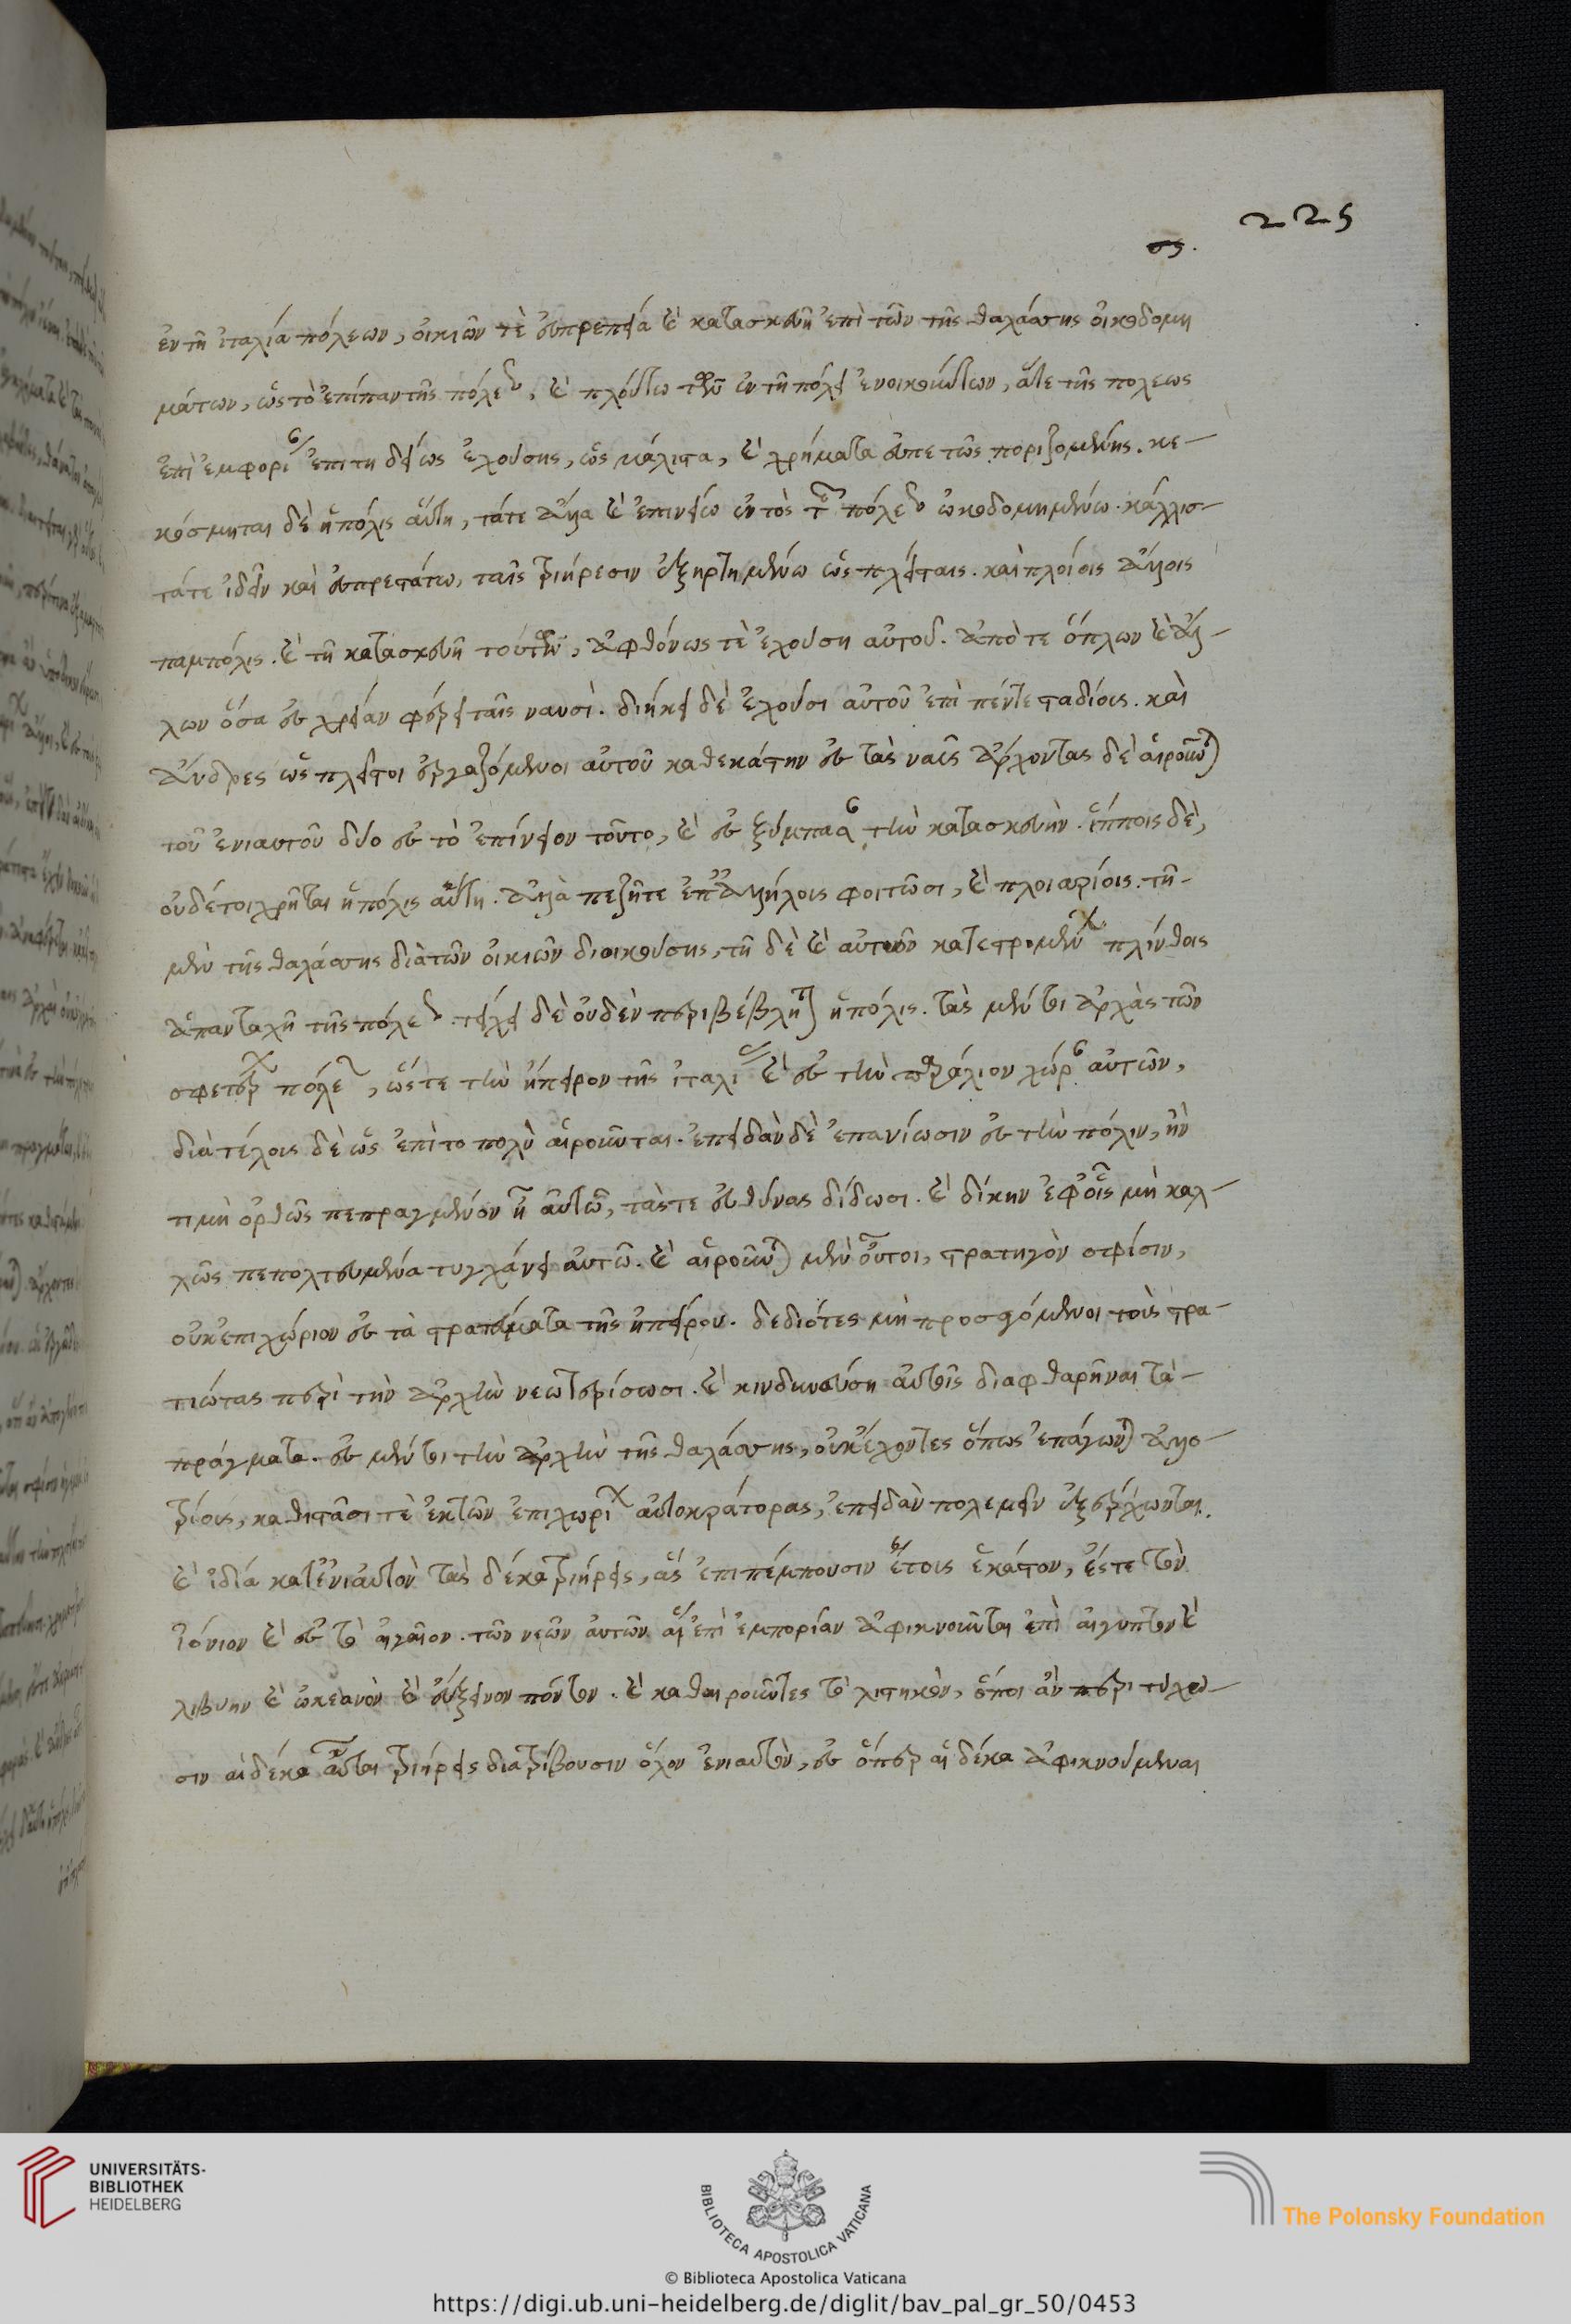 225
σς.
ἐν τῆ ἰταλία πόλεων, οἰκιῶν τὲ εὐπρεπεία καὶ κατασκευῆ ἐπὶ τῶν τῆς θαλάσσης οἰκοδομη
μάτων, ὡς τὸ ἐπίπαν τῆς πόλεως, καὶ πλούτω τῶν ἐν τῆ πόλει ἐνοικούντων, ἅτε τῆς πόλεως
ἐπὶ ἐμπορίαν ἐπιτηδείως ἐχούσης, ὡς μάλιστα, καὶ χρήματα εὐπετῶς ποριζομένης. κε-
κόσμηται δὲ ἡ πόλις αὕτη, τάτε ἄλλα καὶ ἐπινείω ἐντὸς τῆς πόλεως ὠκοδομημένω. κάλλισ-
τάτε ἰδεῖν καὶ εὐπρεπάτω, ταῖς τριήρεσιν ἐξηρτημένω ὡς πλείσταις. καὶ πλοίοις ἄλλοις
παμπόλις. καὶ τῆ κατασκευῆ τούτων, ἀφθόνως τὲ ἐχούση αὐτοῦ. ἀπό τε ὅπλων καὶ ἄλ-
λων ὅσα ἐς χρείαν φέρει ταῖς ναυσί. διήκει δὲ ἐχούσι αὐτοῦ ἐπὶ πέντε σταδίοις. καὶ
ἄνδρες ὡς πλεῖστοι ἐργαζόμενοι αὐτοῦ καθεκάστην ἐς τὰς ναῦς ἄρχοντας δὲ αἱροῦνται
τοῦ ἐνιαυτοῦ δύο ἐς τὸ ἐπίνειον τοῦτο, καὶ ἐς ξύμπασαν τὴν κατασκευήν. ἵπποις δὲ,
οὐδέτοι χρῆται ἡ πόλις αὕτη. ἀλλὰ πεζῆτε ἐπ' ἀλλήλοις φοιτῶσι, καὶ πλοιαρίοις. τῆ-
μὲν τῆς θαλάσσης διὰ τῶν οἰκιῶν διοικούσης, τῆ δὲ καὶ αὐτῶν κατεστρομένων πλίνθοις
ἁπανταχῆ τῆς πόλεως. τείχει δὲ οὐδὲν περιβέβληται ἡ πόλις. τὰς μέντοι ἀρχὰς τῶν
σφετέρων πόλεων, ἔς τε τὴν ἤπειρον τῆς ἰταλίας καὶ ἐς τὴν παράλιον χώραν αὐτῶν,
διὰ τέλοις δὲ ὡς ἐπὶ το πολὺ αἱροῦνται. ἐπειδὰν δὲ ἐπανίωσιν ἐς τὴν πόλιν, ἢν
τι μὴ ὀρθῶς πεπραγμένον ἦ αὐτῶ, τάς τε εὐθύνας δίδωσι. καὶ δίκην ἐφ' οἷς μὴ καλ-
λῶς πεπολιτευμένα τυγχάνει αὐτῶ. καὶ αἱροῦνται μὲν οὗτοι, στρατηγὸν σφίσιν,
οὐκ ἐπιχώριον ἐς τὰ στρατεύματα τῆς ἠπείρου. δεδιότες μὴ προσφόμενοι τοὺς στρα-
τιώτας περὶ τὴν ἀρχὴν νεωτερίσωσι. καὶ κινδυνεύση αὐτοῖς διαφθαρῆναι τὰ-
πράγματα. ἐς μέντοι τὴν ἀρχὴν τῆς θαλάσσης, οὐκ ἔχοντες ὅπως ἐπάγωνται ἀλλο-
τρίους, καθιστᾶσι τὲ ἐκ τῶν ἐπιχωρίων αὐτοκράτορας, ἐπειδὰν πολεμεῖν ἐξέρχωνται.
καὶ ἰδία κατ' ἐνιαυτὸν τὰς δέκα τριήρεις, ἃς ἐπιπέμπουσιν ἔτοις ἑκάστου, ἔς τε τὸν
ἰόνιον καὶ ἐς τὸ αἰγαῖον. τῶν νεῶν αὐτῶν αἳ ἐπὶ ἐμπορίαν ἀφικνοῦνται ἐπὶ αἴγυπτον καὶ
λιβύην καὶ ὠκεανὸν καὶ εὔξεινον πόντον. καὶ καθαιροῦντες τὸ λιστηκὸν, ὅποι ἂν περιτύχω-
σιν αἱ δέκα αὗται τριήρεις διατρίβουσιν ὅλον ἐνιαυτὸν, ἐς ὅπερ αἱ δέκα ἀφικνούμεναι
UNIVERSITÄTS-
BIBLIOTHEK
HEIDELBERG
BIBLIOTECA APOSTOLICA VATICANA
The Polonsky Foundation
© Biblioteca Apostolica Vaticana
https://digi.ub.uni-heidelberg.de/diglit/bav_pal_gr_50/0453